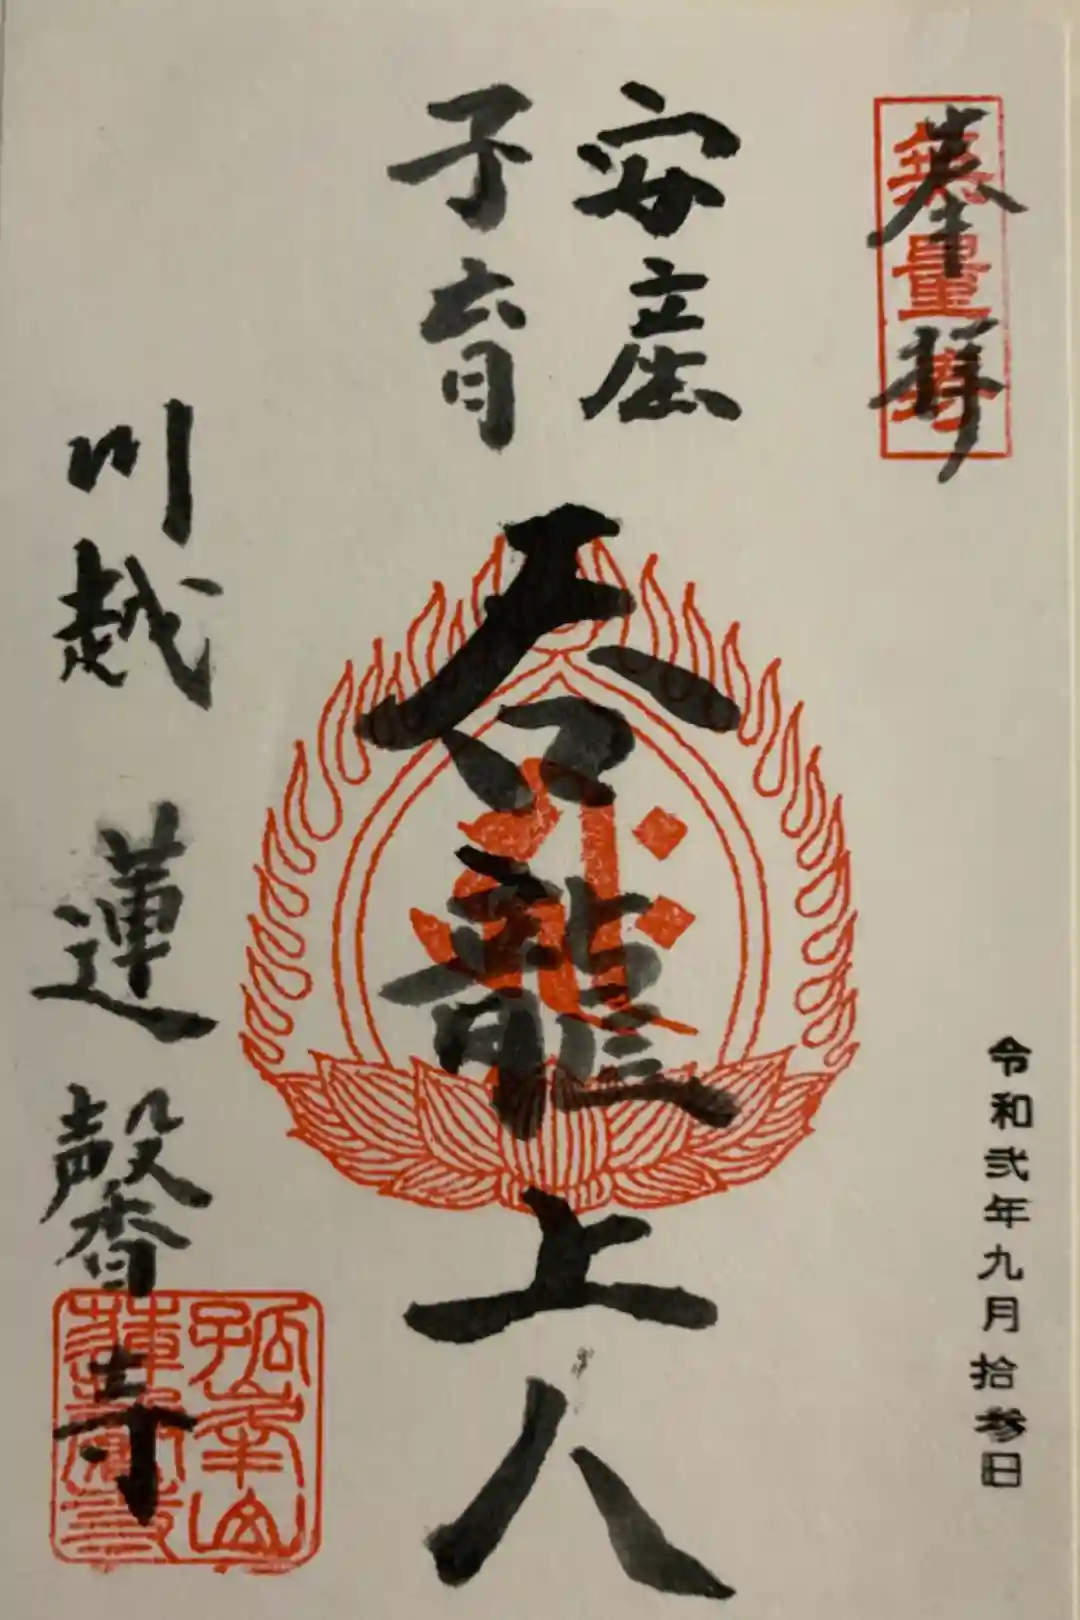 奉拝
無量
令和弐年九月拾参日
安産
子育
呑龍上人
川越 蓮馨寺
孤峯山
蓮馨寺